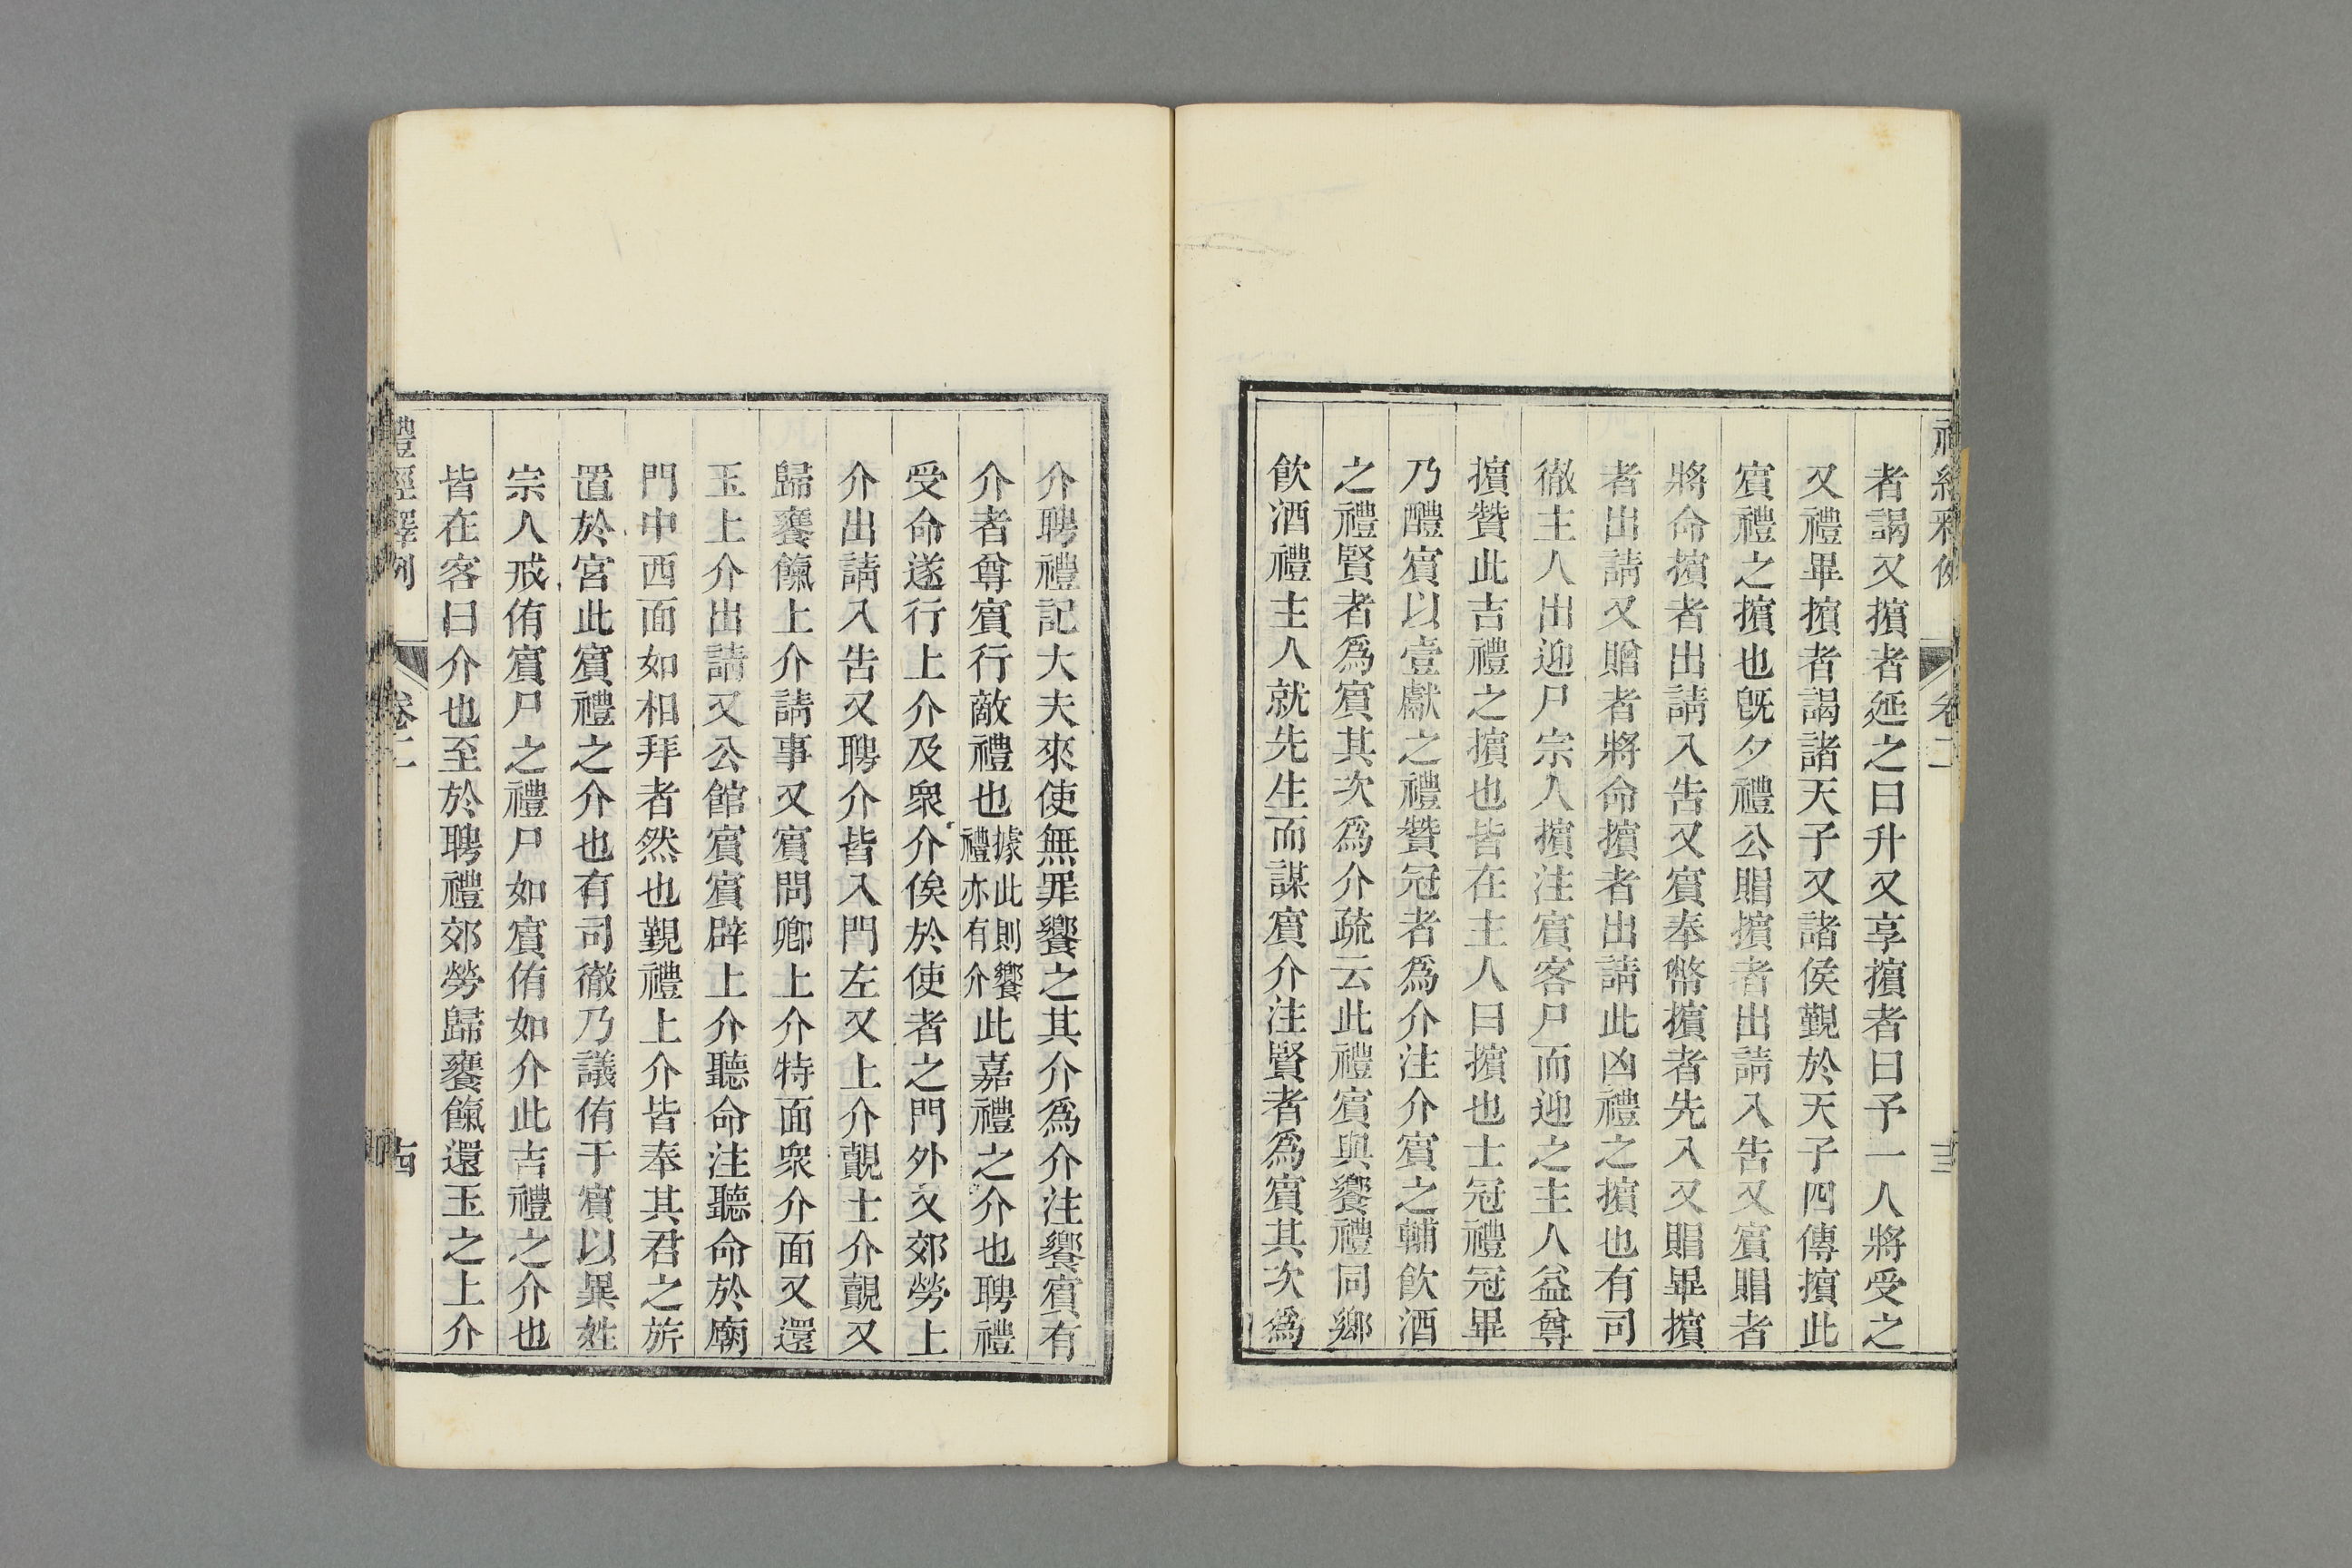 者謁又擯者延之曰升又享擯者曰予一人將受之
又禮畢擯者謁諸天子又諸侯覲於天子四傳擯此
賓禮之擯也旣夕禮公賵擯者出請入告又賓賵者
將命擯者出請入告又賓奉幣擯者先入又賵畢擯
者出請又贈者將命擯者出請此凶禮之擯也有司
徹主人出迎尸宗人擯注賓客尸而迎之主人益尊
擯贊此吉禮之擯也皆在主人曰擯也士冠禮冠畢
乃醴賓以壹獻之禮贊冠者爲介注介賓之輔飮酒
之禮賢者爲賓其次爲介疏云此禮賓與饗禮同鄉
飮酒禮主人就先生而謀賓介注賢者爲賓其次爲
介聘禮記大夫來使無罪饗之其介爲介注饗賓有
介者尊賓行敵禮也據此則饗禮亦有介此嘉禮之介也聘禮
受命遂行上介及衆介俟於使者之門外又郊勞上
介出請入告又聘介皆入門左又上介覿士介覿又
歸饔餼上介請事又賓問卿上介特面衆介面又還
玉上介出請又公館賓賓辟上介聽命注聽命於廟
門中西面如相拜者然也覲禮上介皆奉其君之旂
置於宮此賓禮之介也有司徹乃議侑于賓以異姓
宗人戒侑賓尸之禮尸如賓侑如介此吉禮之介也
皆在客曰介也至於聘禮郊勞歸饔餼還玉之上介
禮經釋例
卷二